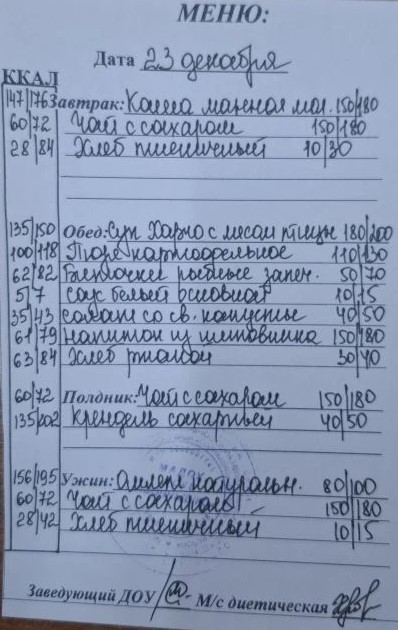 МЕНЮ:
Дата 23 декабря
ККАЛ
147/176 Завтрак: Каша манная мол. 150/180
60/72 Чай с сахаром 150/180
28/84 Хлеб пшеничный 10/30
135/150 Обед: Суп Харчо с мясом птицы 180/200
100/118 Пюре картофельное 110/130
62/82 Биточки рыбные запеч. 50/70
5/7 Соус белый основной 10/15
35/43 салат со св. капусты 40/50
61/79 напиток из шиповника 150/180
63/84 Хлеб ржаной 30/40
60/72 Полдник: Чай с сахаром 150/180
135/202 крендель сахарный 40/50
156/195 Ужин: Омлет натуральн. 80/100
60/72 Чай с сахаром 150/180
28/42 Хлеб пшеничный 10/15
Заведующий ДОУ М/с диетическая